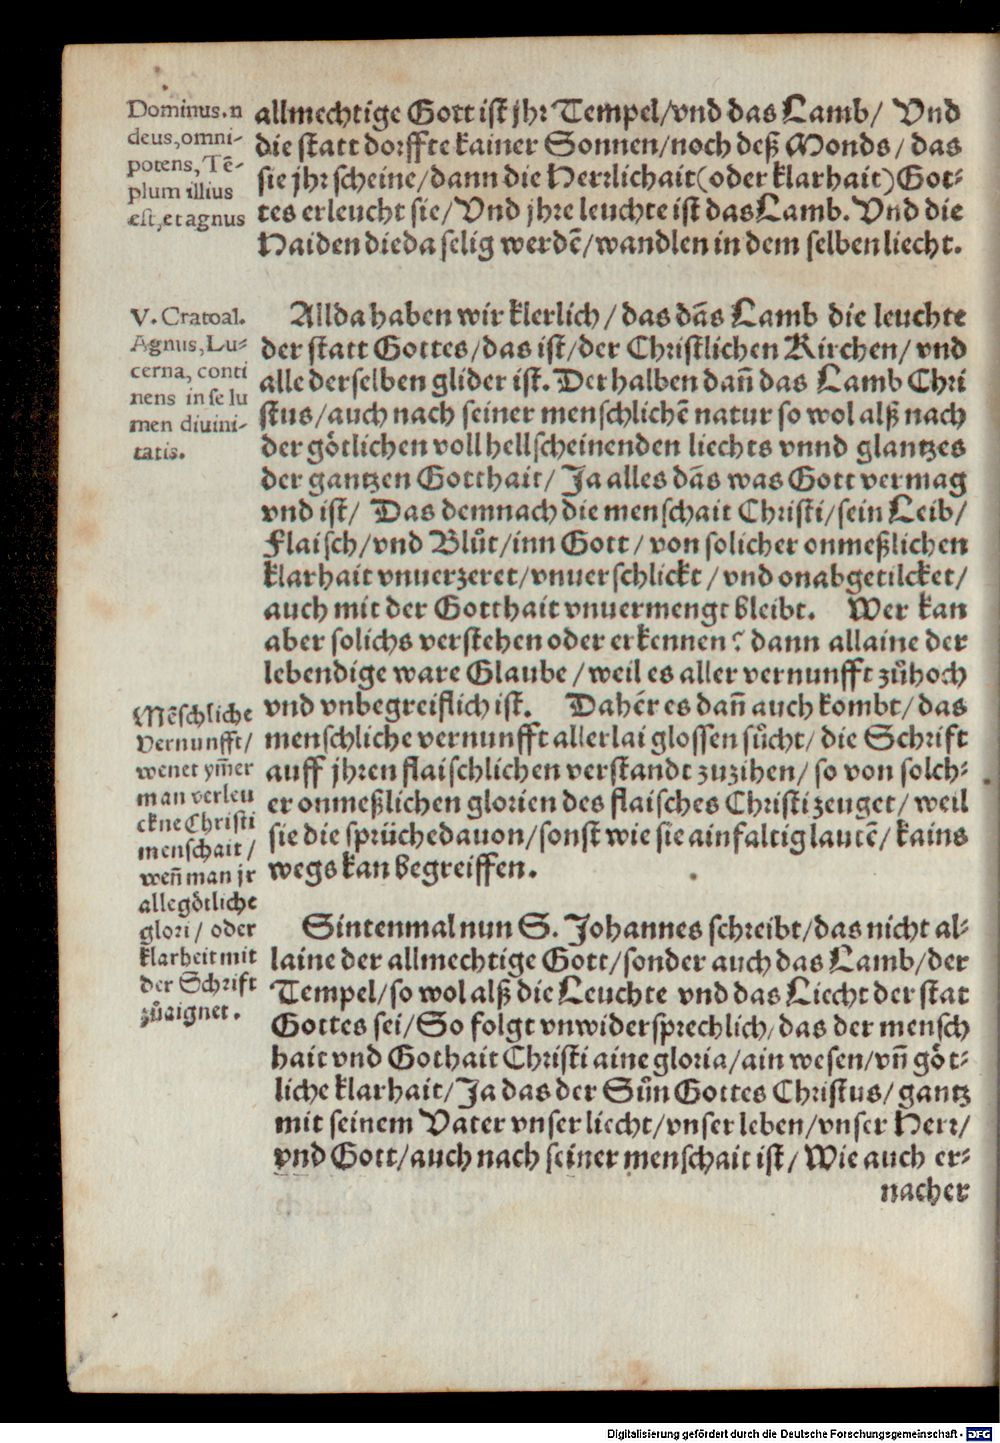 Dominus.n
deus,omni-
potens, Tē-
plum illius
est,et agnus
allmechtige Gott ist jhr Tempel/vnd das Lamb/ Vnd
die statt dorffte kainer Sonnen/noch deß Monds/ das
sie jhr scheine/dann die Herrlichait(oder klarhait)Got-
tes erleucht sie/Vnd jhre leuchte ist das Lamb. Vnd die
Haiden die da selig werdē/wandlen in dem selben liecht.
V. Cratoal.
Agnus,Lu-
cerna, conti
nens in se lu
men diuini-
tatis.
Allda haben wir klerlich/das dās Lamb die leuchte
der statt Gottes/das ist/der Christlichen Kirchen/vnd
alle derselben glider ist. Derhalben dañ das Lamb Chri
stus/auch nach seiner menschlichē natur so wol alß nach
der götlichen voll hellscheinenden liechts vnnd glantzes
der gantzen Gotthait/ Ja alles dās was Gott vermag
vnd ist/ Das demnach die menschait Christi/sein Leib/
Flaisch/vnd Blůt/inn Gott/von solicher onmeßlichen
klarhait vnuerzeret/vnuerschlickt/vnd onabgetilcket/
auch mit der Gotthait vnuermengt bleibt. Wer kan
aber solichs verstehen oder erkennen? dann allaine der
lebendige ware Glaube/weil es aller vernunfft zůhoch
vnd vnbegreiflich ist. Dahēr es dañ auch kombt/das
menschliche vernunfft allerlai glossen sůcht/die Schrift
auff jhren flaischlichen verstandt zuzihen/so von solch-
er onmeßlichen glorien des flaisches Christi zeuget/weil
sie die sprüche dauon/sonst wie sie ainfaltig lautē/kains
wegs kan begreiffen.
Mēschliche
vernunfft/
wenet ym̄er
man verleu
ckne Christi
menschait/
weñ man jr
alle götliche
glori/ oder
klarheit mit
der Schrift
zůaignet.
Sintenmal nun S. Johannes schreibt/das nicht al-
laine der allmechtige Gott/sonder auch das Lamb/der
Tempel/so wol alß die Leuchte vnd das Liecht der stat
Gottes sei/So folgt vnwidersprechlich/das der mensch
hait vnd Gothait Christi aine gloria/ain wesen/vñ göt-
liche klarhait/Ja das der Sůn Gottes Christus/gantz
mit seinem Vater vnser liecht/vnser leben/vnser Herr/
vnd Gott/auch nach seiner menschait ist/Wie auch er-
nacher
Digitalisierung gefördert durch die Deutsche Forschungsgemeinschaft - DFG